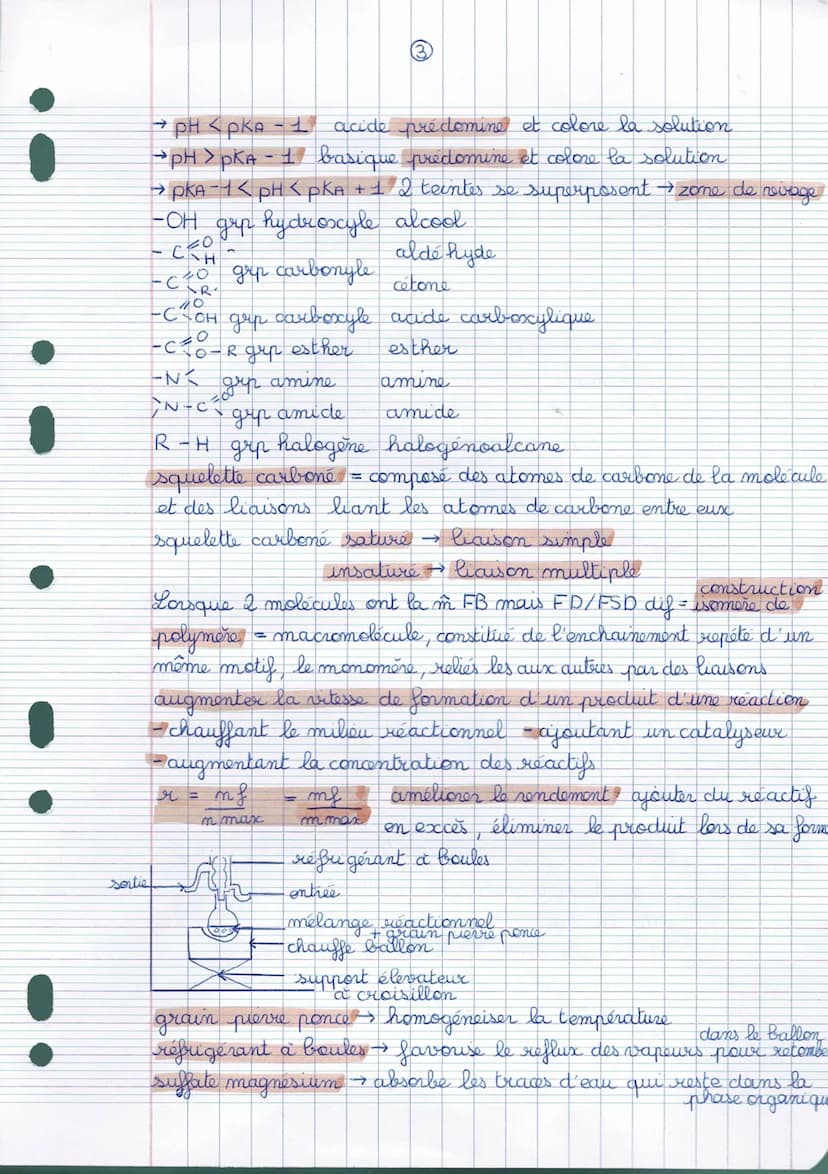 ③
→ pH < pKA - 1 acide prédomine et colore la solution
→ pH > pKA - 1 basique prédomine et colore la solution
→ pKA - 1 < pH < pKA + 1 2 teintes se superposent → zone de virage
-OH grp hydroxyle alcool
- C =O -H aldéhyde
grp carbonyle
- C =O -R cétone
- C =O -OH grp carboxyle acide carboxylique
- C =O -O-R grp esther esther
-N< grp amine amine
>N-C=O grp amide amide
R - H grp halogène halogénoalcane
squelette carboné = composé des atomes de carbone de la molécule
et des liaisons liant les atomes de carbone entre eux
squelette carboné saturé → liaison simple
insaturé → liaison multiple
Lorsque 2 molécules ont la m̂ FB mais FD/FSD dif = isomère de construction
polymère = macromolécule, constitué de l'enchainement repété d'un
même motif, le monomère, reliés les aux autres par des liaisons
augmenter la vitesse de formation d'un produit d'une réaction
- chauffant le milieu réactionnel - ajoutant un catalyseur
- augmentant la concentration des réactifs
r = nf / n max = mf / m max améliorer le rendement : ajouter du réactif
en excès, éliminer le produit lors de sa form
réfrigérant à boules
sortie
entrée
mélange réactionnel
+ grain pierre ponce
chauffe ballon
support élevateur
à croisillon
grain pierre ponce → homogéneiser la température
réfrigérant à boules → favorise le reflux des vapeurs pour retombe
dans le ballon
sulfate magnésium → absorbe les traces d'eau qui reste dans la
phase organiqu